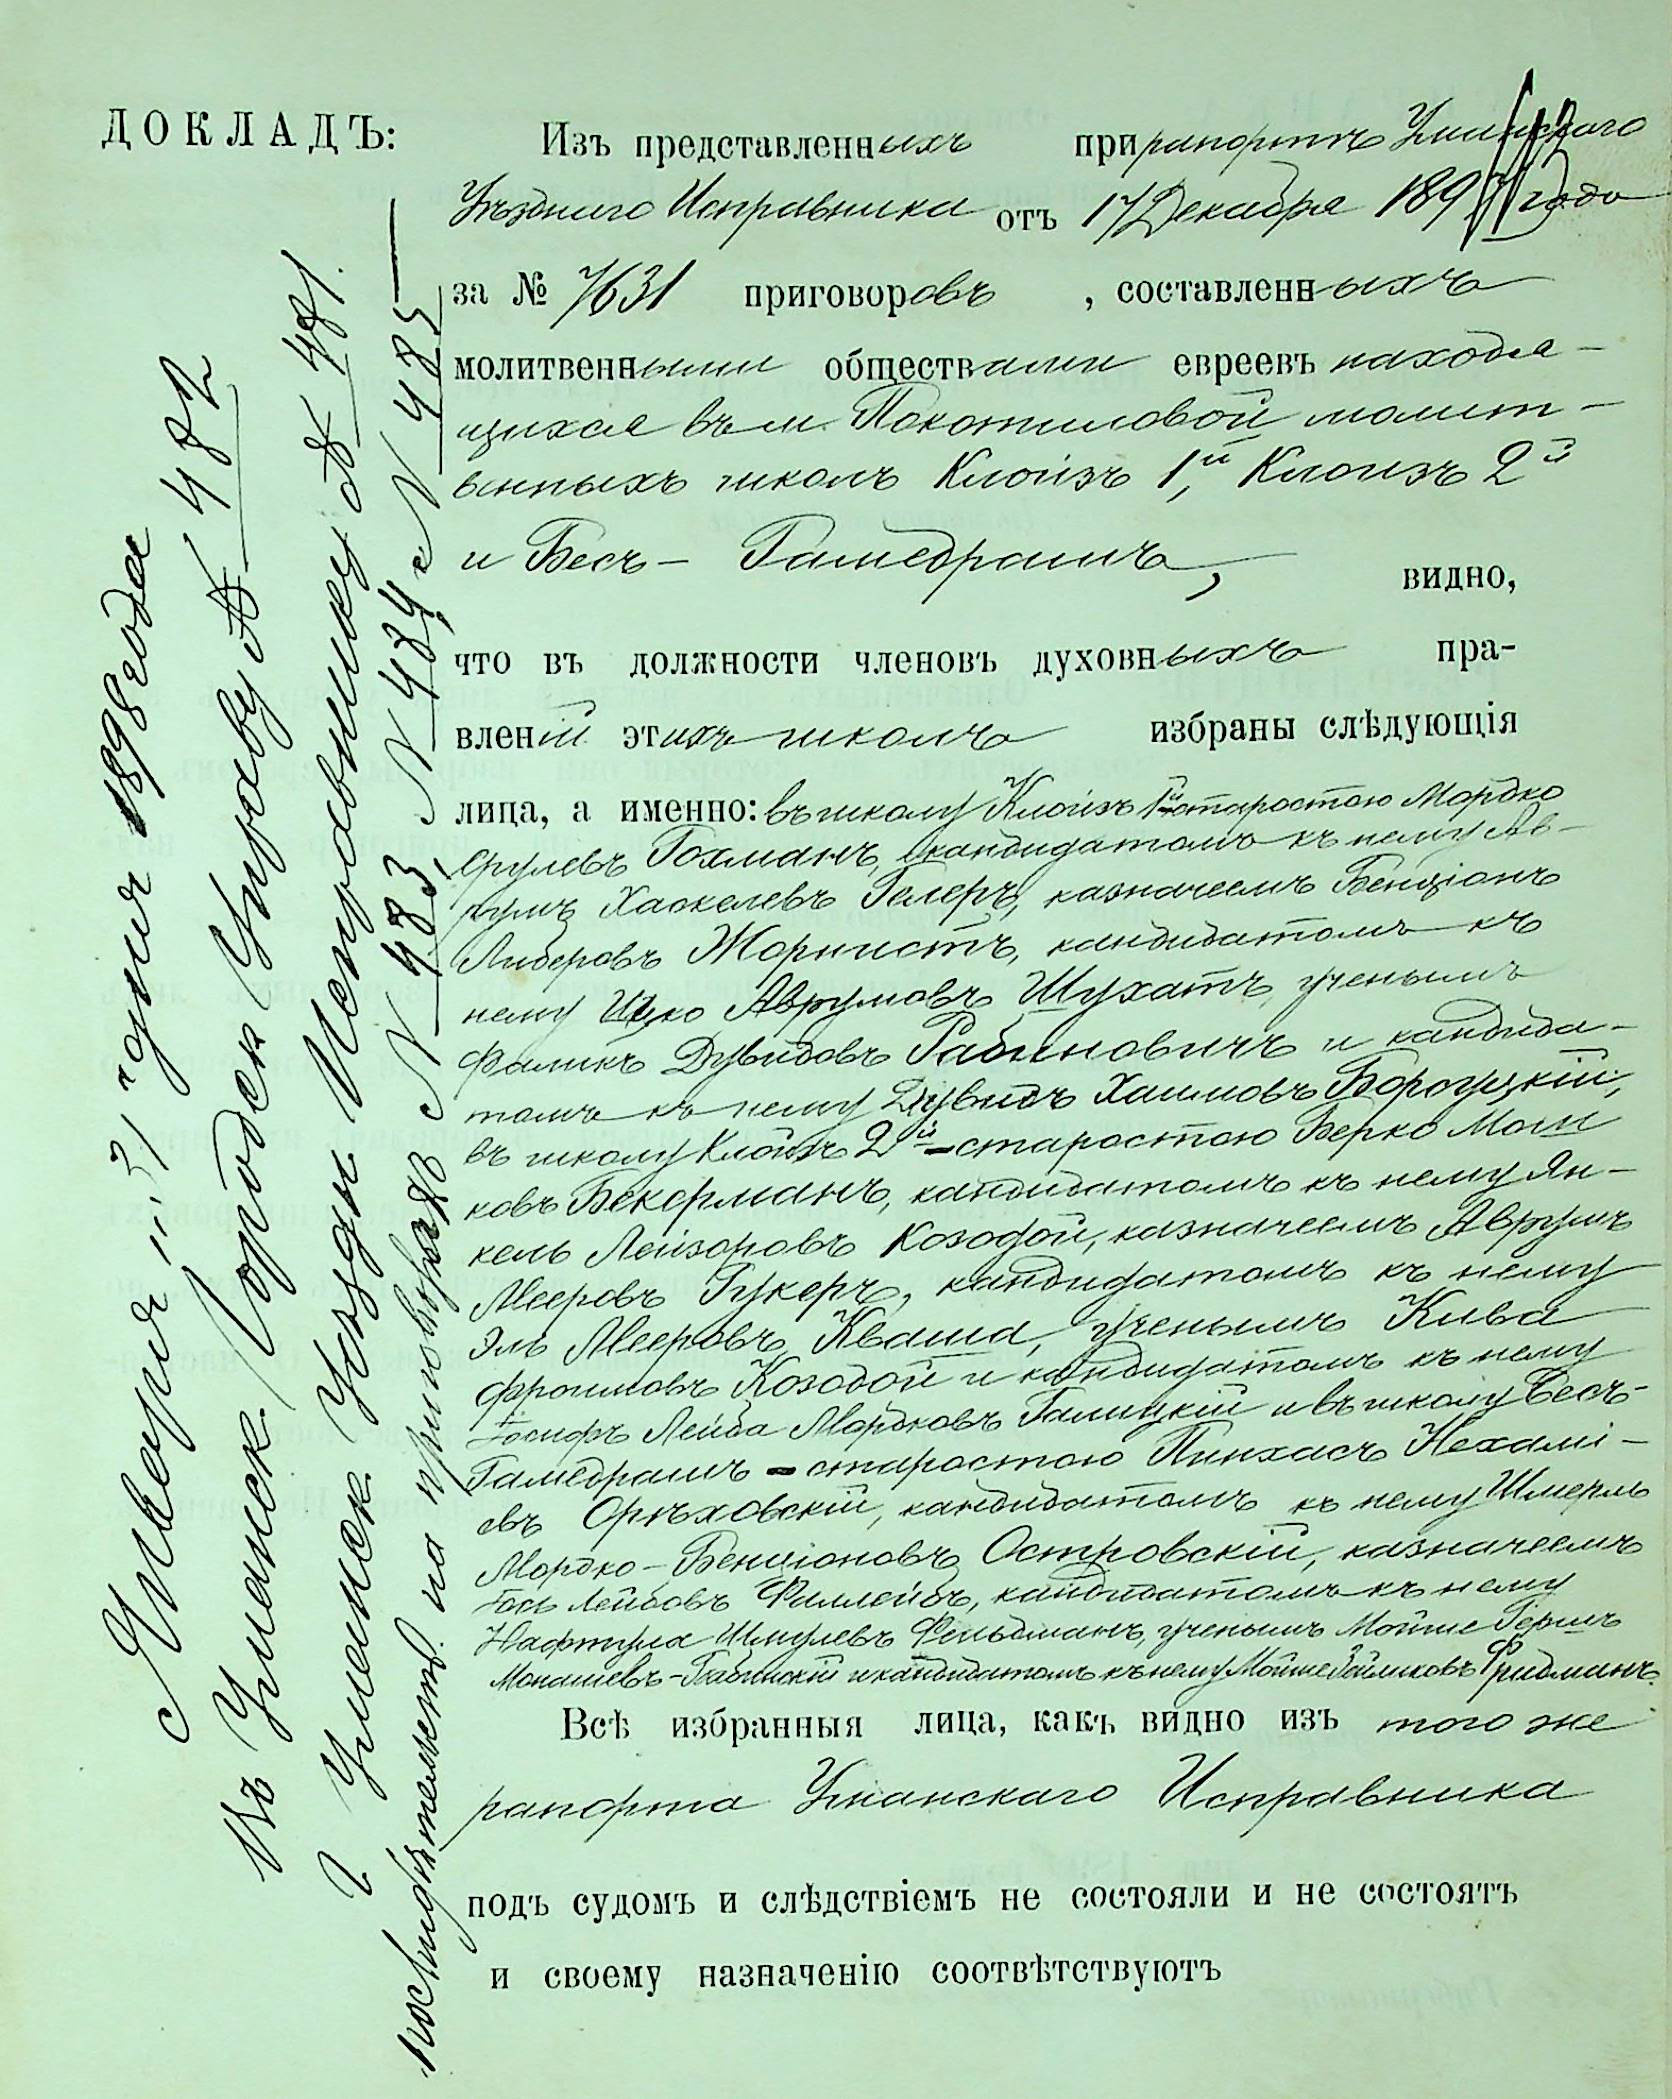 ДОКЛАДЪ:
Изъ представленныхъ при рапортѣ Уманскаго
Уѣзднаго Исправника отъ 17 Декабря 1897 года
за № 7631 приговоровъ, составленныхъ
молитвенными обществами евреевъ находя-
щихся въ м. Покотиловой молит-
венныхъ школъ Клойзъ 1й, Клоизъ 2й
и Бесъ-Гамедрашъ, видно,
что въ должности членовъ духовныхъ пра-
вленій этихъ школъ избраны слѣдующія
лица, а именно: въ школу Клойзъ 1й старостою Мордко
Срулевъ Гохманъ, кандидатомъ къ нему Ав-
румъ Хаскелевъ Гелеръ, казначеемъ Бенціонъ
Либеровъ Жорнистъ, кандидатомъ къ
нему Ицко Аврумовъ Шухатъ, ученымъ
Фаликъ Дувидовъ Рабиновичъ и кандида-
томъ къ нему Дувидъ Хаимовъ Бороуцкій,
въ школу Клойзъ 2й - старостою Берко Мош
ковъ Бекерманъ, кандидатомъ къ нему Ян-
кель Лейзоровъ Козодой, казначеемъ Аврумъ
Мееровъ Гукеръ, кандидатомъ къ нему
Эль Мееровъ Кваша, ученымъ Кива
Фроимовъ Козодой и кандидатомъ къ нему
Іосифъ Лейба Мордковъ Галицкій и въ школу Бесъ-
Гамедрашъ - старостою Пинхасъ Нехамі-
евъ Орѣховскій, кандидатомъ къ нему Шмерль
Мордко-Бенціоновъ Островскій, казначеемъ
Іось Лейбовъ кандидатомъ къ нему
Нафтула Шмулевъ Фельдманъ, ученымъ Мойше Гершъ
Монашевъ и кандидатомъ къ нему Мойше Фридманъ.
Всѣ избранныя лица, какъ видно изъ того же
рапорта Уманскаго Исправника
подъ судомъ и слѣдствіемъ не состояли и не состоятъ
и своему назначенію соотвѣтствуютъ
Января "31" дня 1898 года
Въ Уманск. Городск Управу № 482
Уманск Уѣздн Исправнику № 481.
на приговорахъ № 483, № 484 и № 485